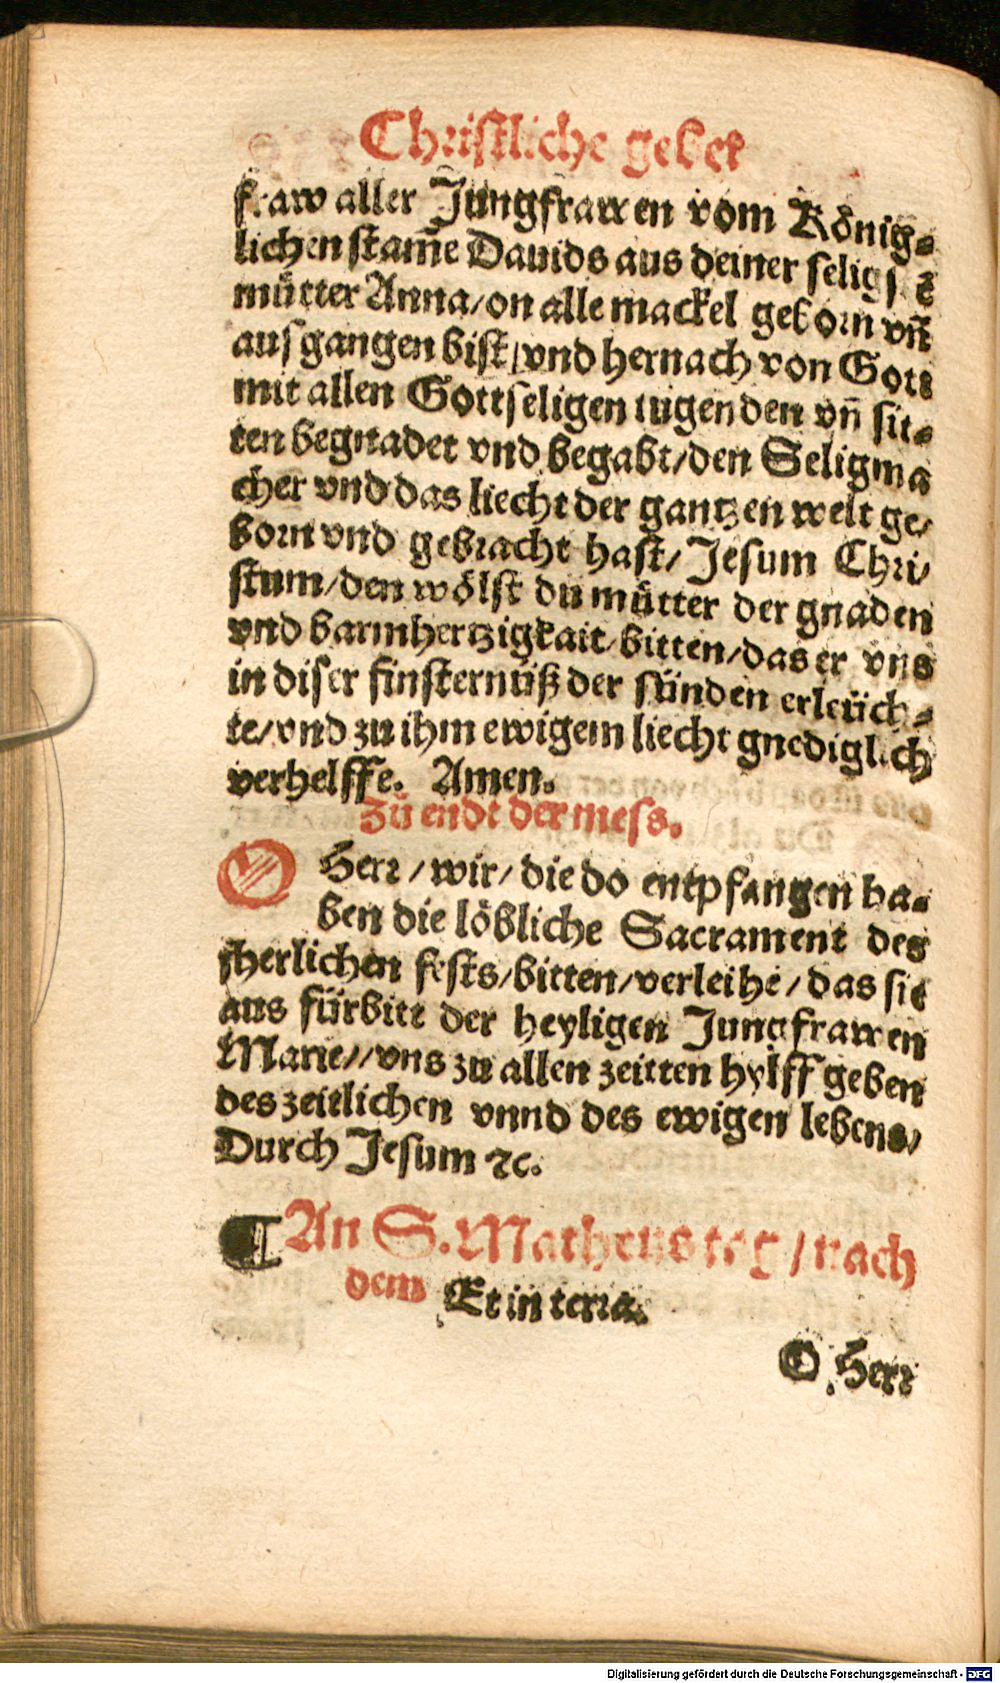 Christliche gebet
fraw aller Jungfrawen vom König-
lichen stam̄e Dauids aus deiner seligstē
mütter Anna/on alle mackel geborn vn̄
ausgangen bist/vnd hernach von Gott
mit allen Gottseligen tugenden vn̄ sit-
ten begnadet vnd begabt/den Seligma
cher vnd das liecht der gantzen welt ge/
born vnd gebracht hast/Jesum Chri/
stum/den wölst du mütter der gnaden
vnd barmhertzigkait bitten/das er vns
in diser finsternüß der sünden erleüch-
te/vnd zu ihm ewigem liecht gnediglich
verhelffe. Amen.
zü endt der mess.
O Herr/wir/die do entpfangen ha-
ben die löbliche Sacrament des
iherlichen fests/bitten/verleihe/das sie
aus fürbitt der heyligen Jungfrawen
Marie//vns zu allen zeitten hylff geben
des zeitlichen vnnd des ewigen lebens/
Durch Jesum ꝛc.
¶ An S. Matheus tag/nach
dem Et in terra.
O Herr
Digitalisierung gefördert durch die Deutsche Forschungsgemeinschaft - DFG